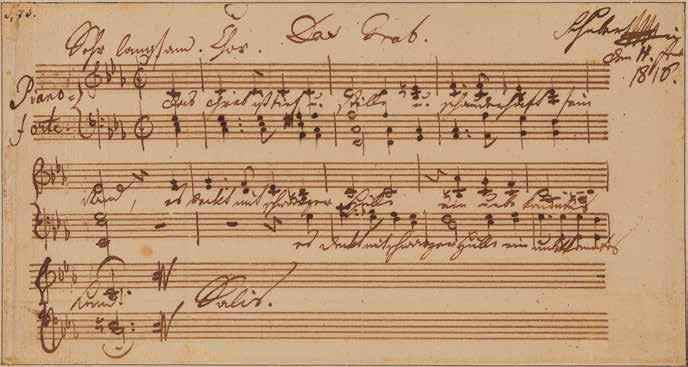 Das Grab. Schubert
Sehr langsam. Chor. den 11.
1816.
Piano-
forte.
das Grab ist tief u. stille u. schauderhaft sein
Rand, es deckt mit schwarzer Hülle ein unbekanntes
es deckt mit schwarzer Hülle ein unbekanntes
Land. Salis.